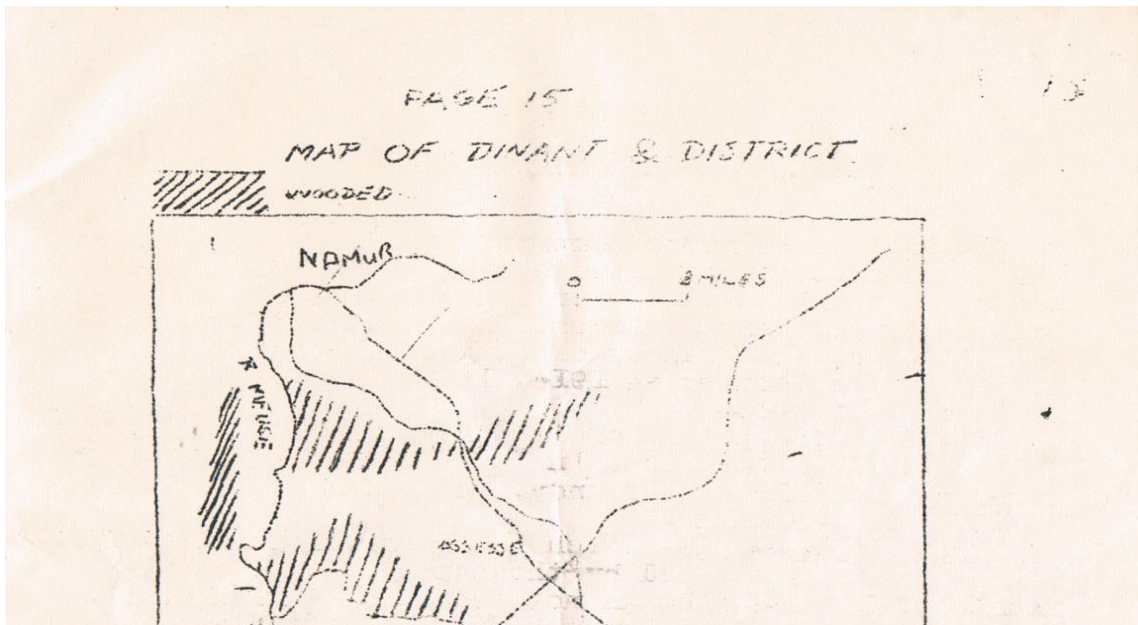 PAGE 15
15
MAP OF DINANT & DISTRICT
WOODED
NAMUR
0 2 MILES
R MEUSE
ASSESSE